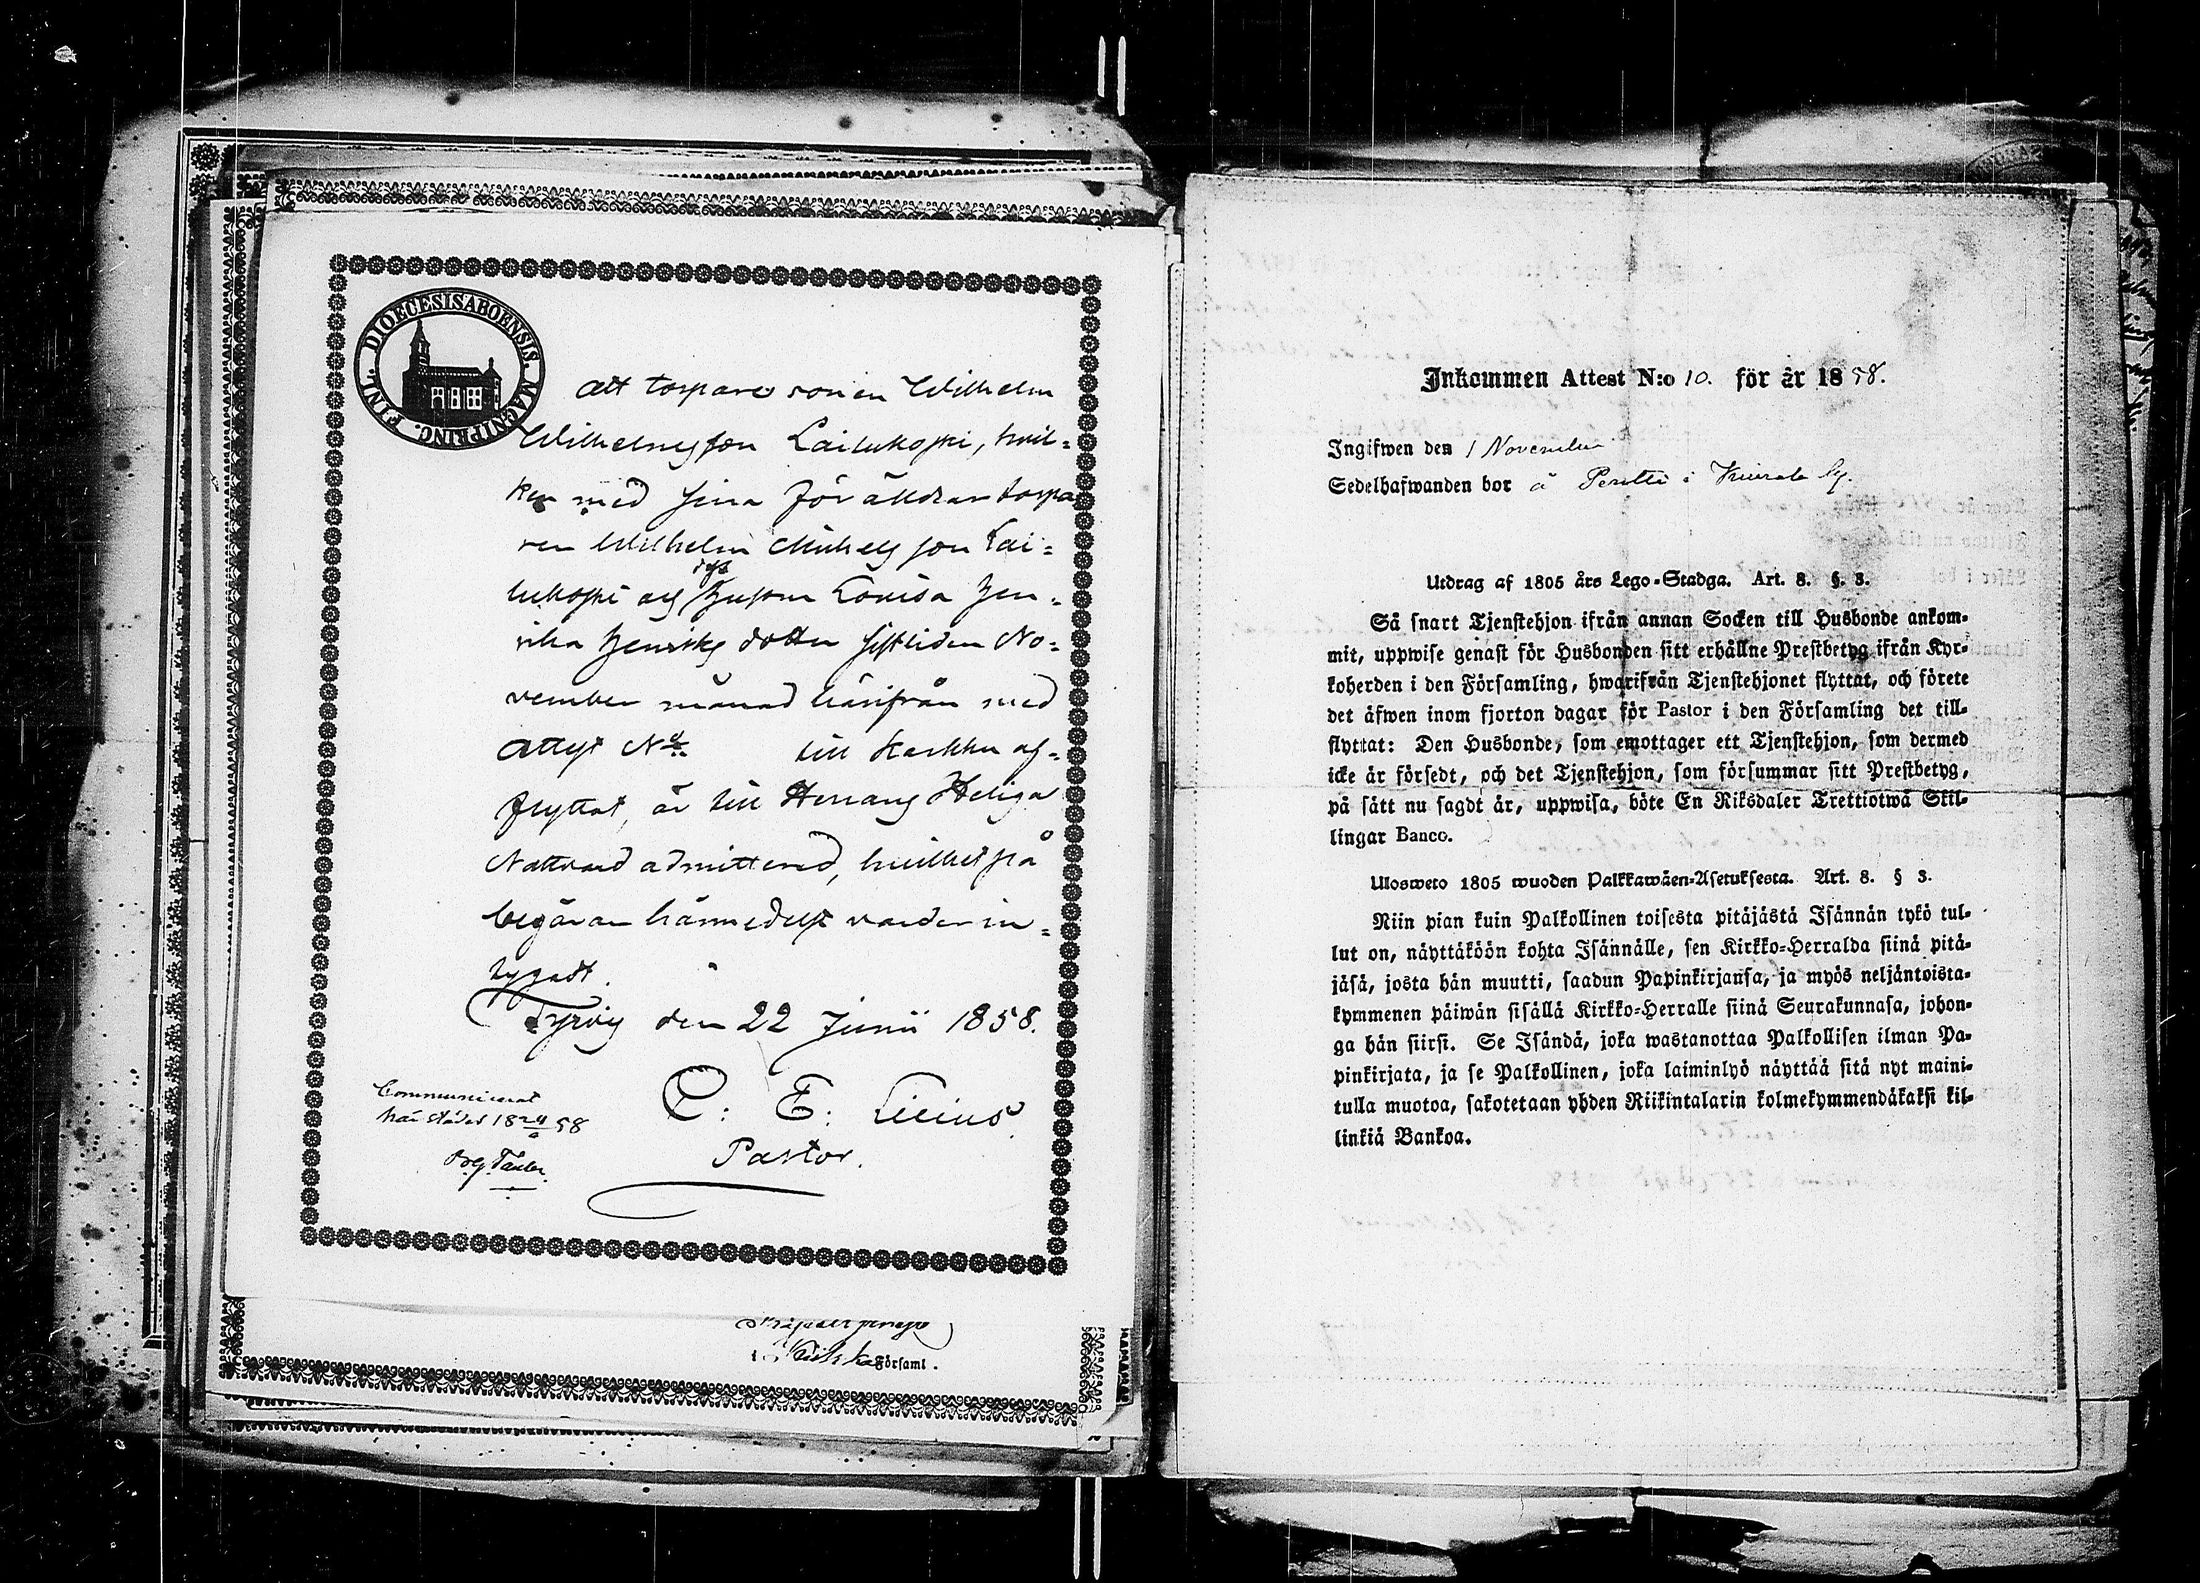 DIOECESIS ABOENSIS. MAGNI PRINC. FINL.
Att torpare sonen Wilhelm
Wilhelmsson Lailukoski, hvil-
ken med sina föräldrar torpa
ren Wilhelm Michelsson Lai-
lukoski och dess hustru Lovisa Hen-
rika Henriksdotter sistliden No-
vember månad härifrån med
Attest No till Karkku af-
flyttat, är till Herrans Heliga
Nattvard admitterad, hvilket på
begäran härmedelst varder in-
tygadt.
Tyrvis den 22 Junii 1858.
C: E: Lilius
Pastor.
Communicerat
härstädes 18 24/6 58
Församl.
Inkommen Attest N:o 10. för år 1858.
Ingifwen den 1 November
Sedelhafwanden bor å Pentti i by.
Utdrag af 1805 års Lego-Stadga. Art. 8. §. 3.
Så snart Tjenstehjon ifrån annan Socken till Husbonde ankom-
mit, uppwise genast för Husbonden sitt erhållne Prestbetyg ifrån Kyr-
koherden i den Församling, hwarifrån Tjenstehjonet flyttat, och förete
det äfwen inom fjorton dagar för Pastor i den Församling det till-
flyttat: Den Husbonde, som emottager ett Tjenstehjon, som dermed
icke är försedt, och det Tjenstehjon, som försummar sitt Prestbetyg,
på sätt nu sagdt är, uppwisa, böte En Riksdaler Trettiotwå Skil-
lingar Banco.
Ulosweto 1805 wuoden Palkkawäen-Asetuksesta. Art. 8. § 3.
Niin pian kuin Palkollinen toisesta pitäjästä Isännän tykö tul-
lut on, näyttäköön kohta Isännälle, sen Kirkko-Herralda siinä pitä-
jäsä, josta hän muutti, saadun Papinkirjansa, ja myös neljäntoista-
kymmenen päiwän sisällä Kirkko-Herralle siinä Seurakunnasa, johon-
ga hän siirsi. Se Isändä, joka wastanottaa Palkollisen ilman Pa-
pinkirjata, ja se Palkollinen, joka laiminlyö näyttää sitä nyt maini-
tulla muotoa, sakotetaan yhden Riikintalarin kolmekymmendäkaksi kil-
linkiä Bankoa.